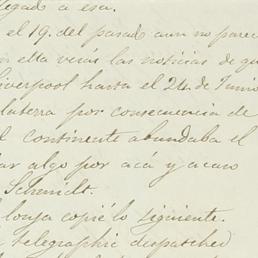 legado a esa.
el 19. del pasado aun no parec
en ella verás las noticias de qu
Liverpool hasta el 24. de Junio
laterra por consecuencia de
l continente abundaba el
ar algo por acá y acaso
Schmidt.
lonja copié lo siguiente.
telegraphic despatched